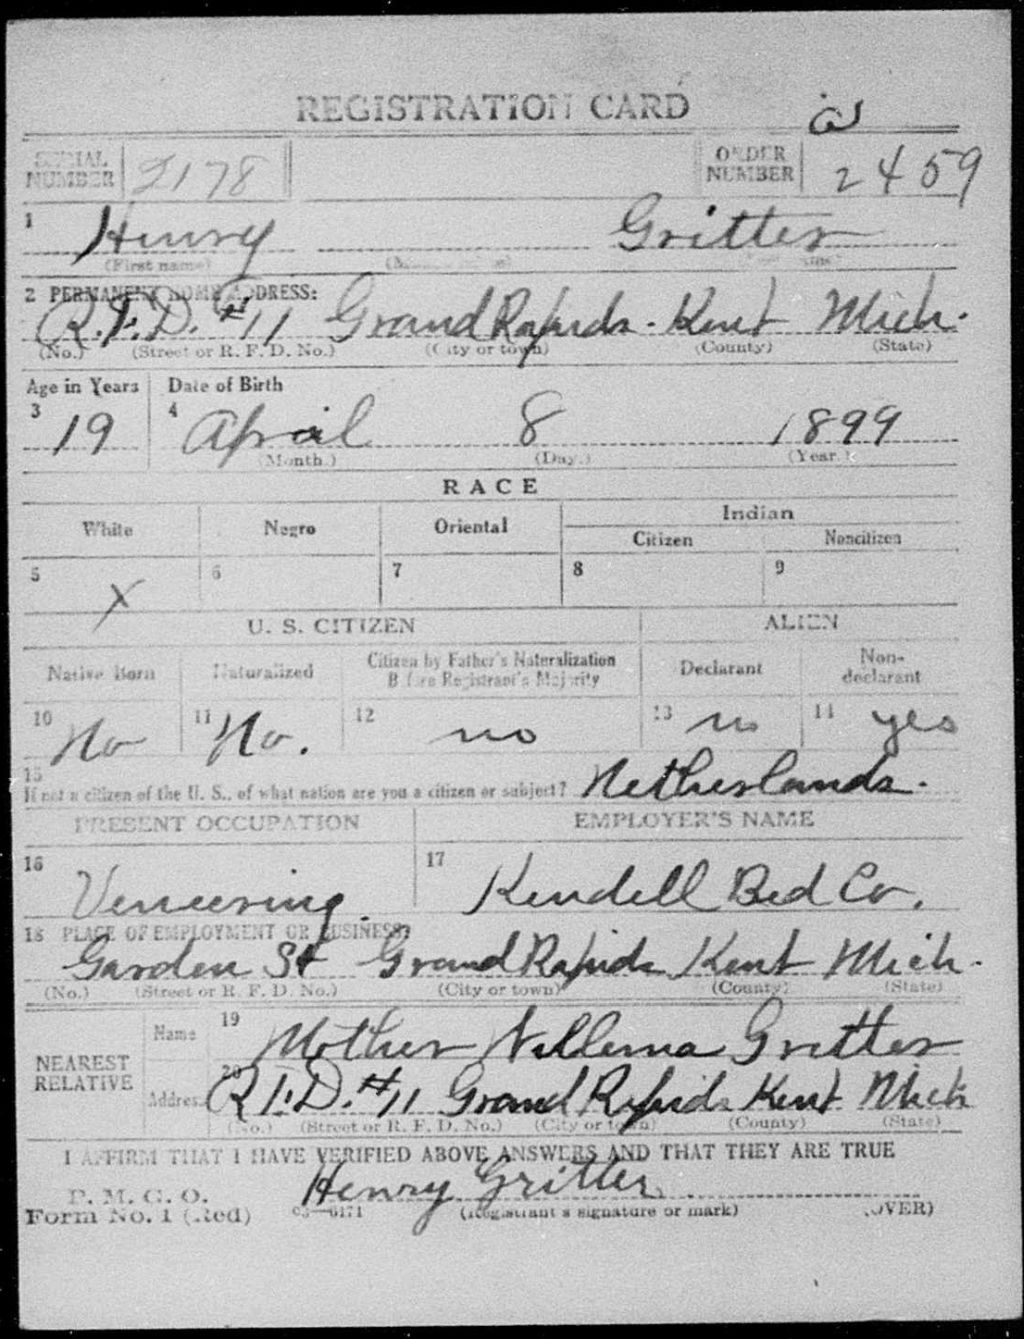 REGISTRATION CARD
SERIAL NUMBER 2178 ORDER NUMBER 2459
1 Henry Gritter
(First name)
2 PERMANENT HOME ADDRESS:
R.F.D. #11 Grand Rapids. Kent Mich.
(No.) (Street or R. F. D. No.) (City or town) (County) (State)
Age in Years Date of Birth
3 19 4 April 8 1899
(Month.) (Day.) (Year.)
RACE
White Negro Oriental Indian
Citizen Noncitizen
5 X 6 7 8 9
U. S. CITIZEN ALIEN
Native Born Naturalized Citizen by Father's Naturalization Before Registrant's Majority Declarant Non-declarant
10 No 11 No. 12 no 13 no 14 yes
15
If not a citizen of the U. S., of what nation are you a citizen or subject? Netherlands.
PRESENT OCCUPATION EMPLOYER'S NAME
16 Veneering. 17 Kendell Bed Co.
18 PLACE OF EMPLOYMENT OR BUSINESS?
Garden St Grand Rapids Kent Mich.
(No.) (Street or R. F. D. No.) (City or town) (County) (State)
NEAREST RELATIVE
Name 19 Mother Gritter
Address 20 R.F.D. #11 Grand Rapids Kent Mich
(No.) (Street or R. F. D. No.) (City or town) (County) (State)
I AFFIRM THAT I HAVE VERIFIED ABOVE ANSWERS AND THAT THEY ARE TRUE
P. M. G. O.
Form No. 1 (Red) 03—6171 Henry Gritter
(Registrant's signature or mark) (OVER)